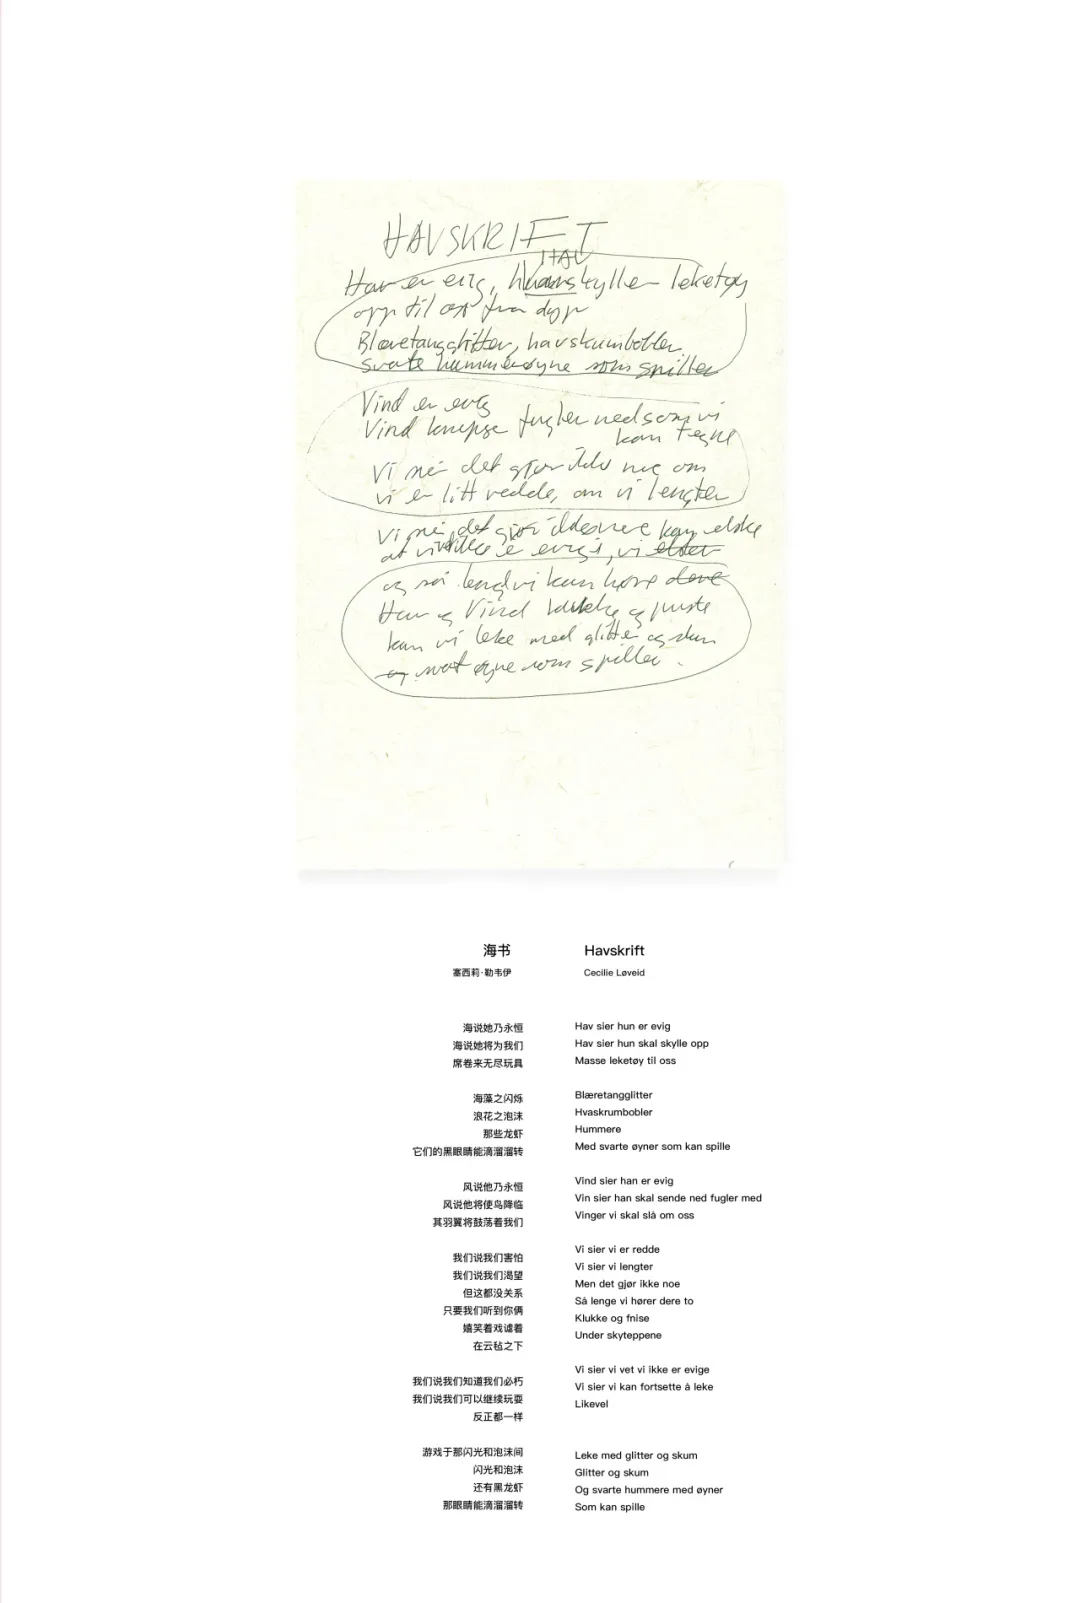 HAVSKRIFT
HAV
Hav er evig, skyller leketøy
opp til oss fra dyp
Blæretangglitter, havskumbobler
svarte hummerøyne som spiller
Vind er evig
Vind knepse fugler ned som vi
kan tegne
Vi sier det gjør ikke noe om
vi er litt redde, om vi lengter
Vi sier det gjør ikke noe kan elske
at vi ikke er evige, vi
og så lenge vi kan høre dere
Hav og Vind klukke og puste
kan vi leke med glitter og skum
og svart øyne som spiller.
海书
塞西莉·勒韦伊
海说她乃永恒
海说她将为我们
席卷来无尽玩具
海藻之闪烁
浪花之泡沫
那些龙虾
它们的黑眼睛能滴溜溜转
风说他乃永恒
风说他将使鸟降临
其羽翼将鼓荡着我们
我们说我们害怕
我们说我们渴望
但这都没关系
只要我们听到你俩
嬉笑着戏谑着
在云毡之下
我们说我们知道我们必朽
我们说我们可以继续玩耍
反正都一样
游戏于那闪光和泡沫间
闪光和泡沫
还有黑龙虾
那眼睛能滴溜溜转
Havskrift
Cecilie Løveid
Hav sier hun er evig
Hav sier hun skal skylle opp
Masse leketøy til oss
Blæretangglitter
Hvaskrumbobler
Hummere
Med svarte øyner som kan spille
Vind sier han er evig
Vin sier han skal sende ned fugler med
Vinger vi skal slå om oss
Vi sier vi er redde
Vi sier vi lengter
Men det gjør ikke noe
Så lenge vi hører dere to
Klukke og fnise
Under skyteppene
Vi sier vi vet vi ikke er evige
Vi sier vi kan fortsette å leke
Likevel
Leke med glitter og skum
Glitter og skum
Og svarte hummere med øyner
Som kan spille